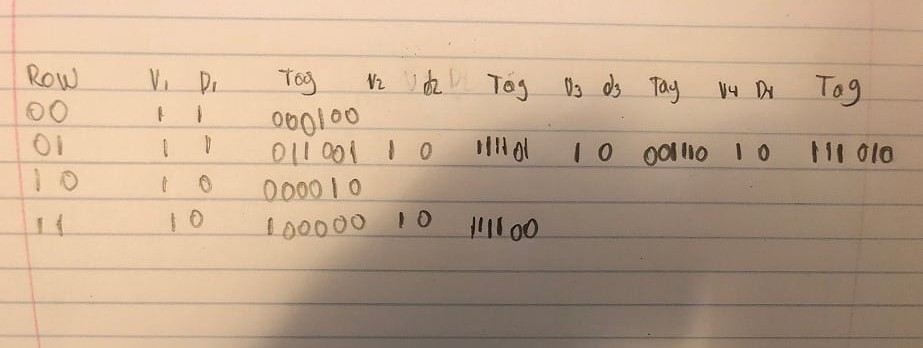 Row V1 D1 Tag V2 d2 Tag V3 d3 Tay V4 D4 Tag
00 1 1 000100
01 1 1 011001 1 0 111101 1 0 001110 1 0 111010
10 1 0 000010
11 1 0 100000 1 0 111100